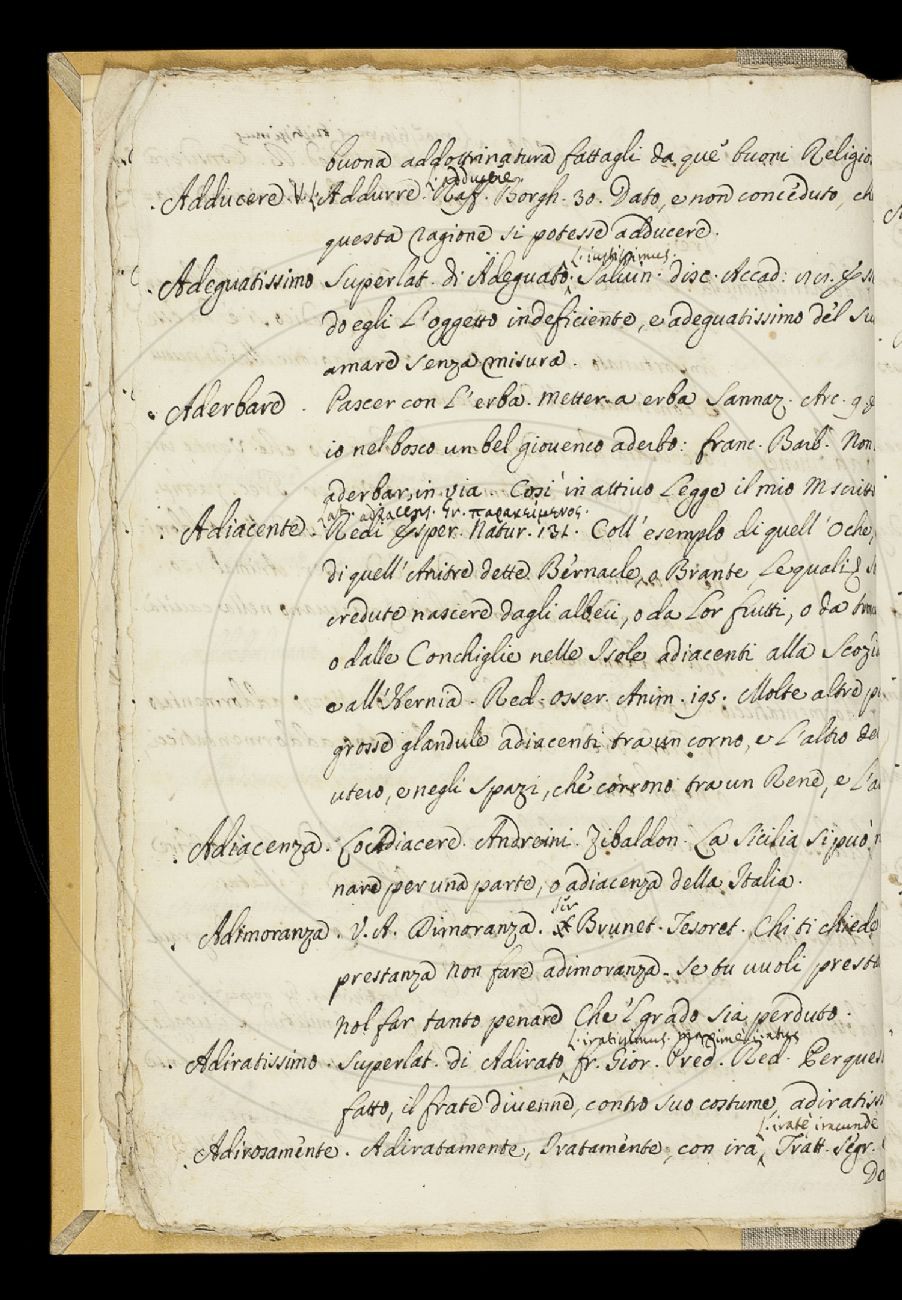 buona addottrinatura fattagli da que' buoni Religio
adducere
Adducere. V. L. Addurre. Raff. Borgh. 30. Dato, e non conceduto, ch
questa ragione si potesse adducere.
L. iustissimus.
Adeguatissimo Superlat. di Adeguato. Salvin. disc. Accad:
do egli L'oggetto indeficiente, e adeguatissimo del Su
amare senza misura.
Aderbare. Pascer con L'erba. Metter a erba Sannaz. Arc. 9.
io nel bosco un bel giovenco aderbo: franc. Barb. Non
aderbar in via. Cosi in attivo Legge il mio M scritt
Lat. adiacens. Gr. παρακείμενος.
Adiacente. Redi Esper. Natur. 131. Coll'esemplo di quell'Oche,
di quell'Anitre dette Bernacle, o Brante Le quali
credute nascere dagli alberi, o da Lor frutti, o da
o dalle Conchiglie nelle Isole adiacenti alla Scozi
e all'Ibernia. Red. osser. Anim. 195. Molte altre p
grosse glandule adiacenti tra un corno, e L'altro del
utero, e negli spazi, che corrono tra un Rene, e L'a
Adiacenza. L'Adiacere. Andreini. Zibaldon. La Sicilia si può
nare per una parte, o adiacenza della Italia.
ser
Adimoranza. V. A. Dimoranza. Brunet. Tesoret. Chi ti chiede
prestanza non fare adimoranza. Se tu vuoli prest
nol far tanto penare Che'l grado sia perduto.
L. iratissimus. maxime iratus
Adiratissimo. Superlat. di Adirato, fr. Gior. Pred. Red. Per ques
fatto, il frate divenne, contro suo costume, adiratiss
L. iratè iracunde
Adirosamente. Adiratamente, Iratamente, con ira, Tratt. Segr.
Do